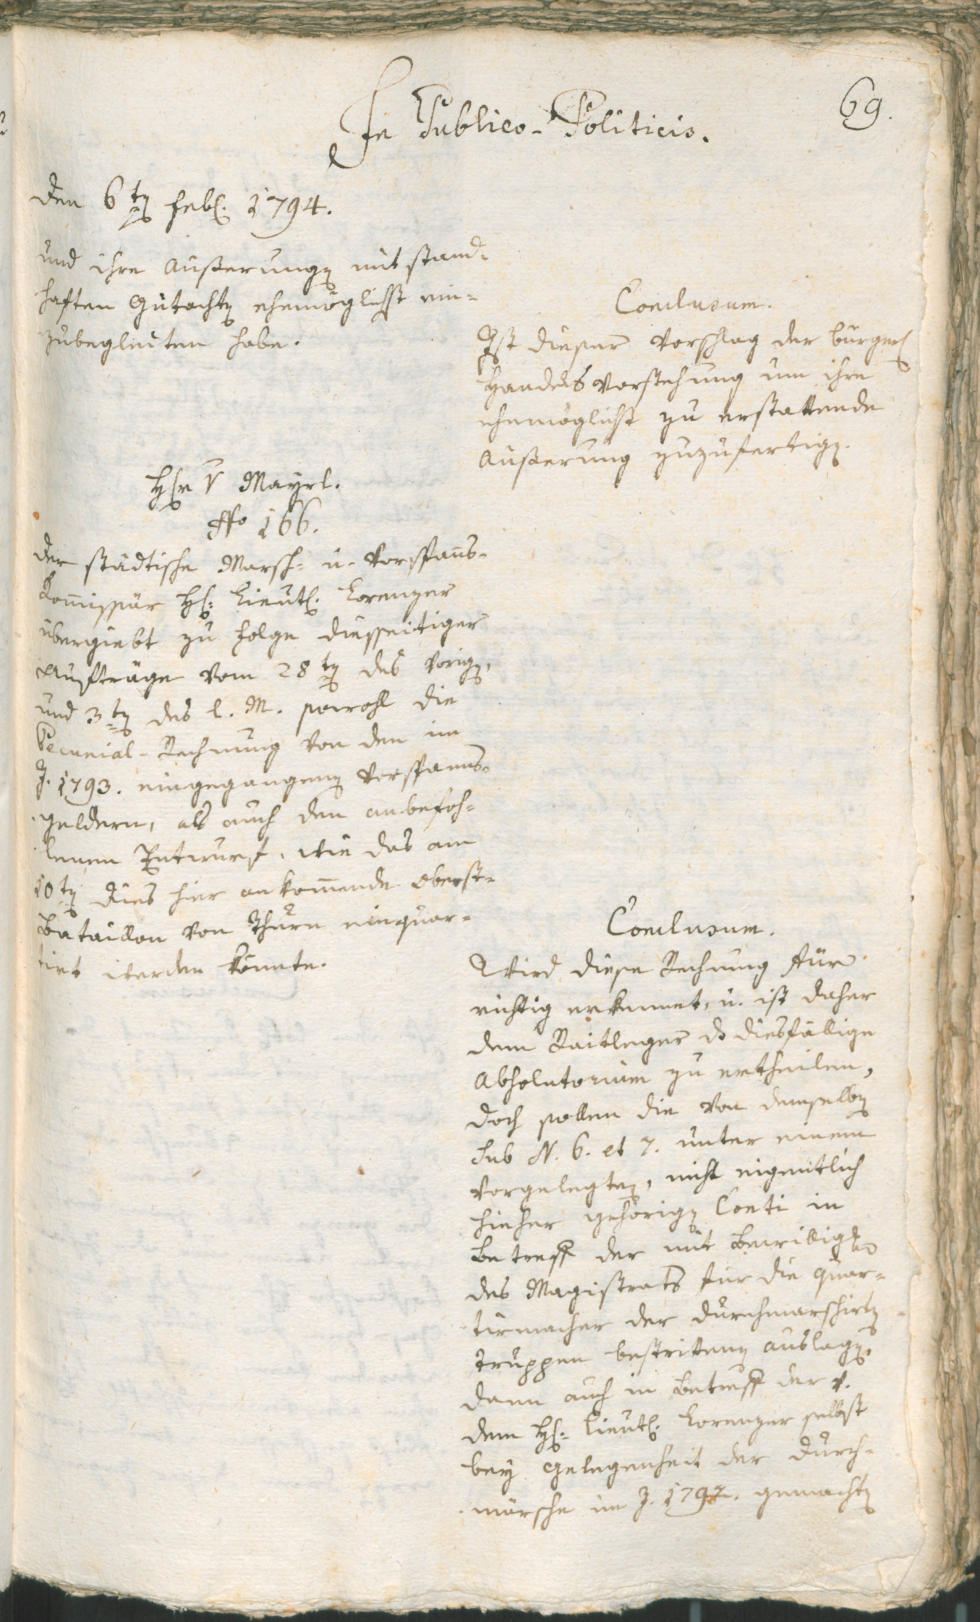 69.
In Publico-Politicis.
den 6ten Feb: 1794.
und ihre Äußerungen mit stand-
haften Gutachten ehemöglichst ein-
zubegleiten habe.
Conclusum.
Ist dieser Vorschlag der bürgerl:
Handels Vorstehung um ihre
ehemöglichst zu erstattende
Äußerung zuzufertigen.
Hr v Mayrl.
No 166.
Der städtische Marsch- u. Vorspanns-
Kommissär H: Lieut: Lorenzer
übergiebt zu Folge diesseitiger
Aufträge vom 28ten des vorigen,
und 3ten des l. M. sowohl die
Pecunial-Rechnung von den im
J. 1793. eingegangenen Vorspanns-
geldern, als auch den anbefoh-
lenen Entwurf, wie das am
10ten dies hier ankommende Oberst-
Bataillon von Thurn einquar-
tirt werden könnte.
Conclusum.
Wird diese Rechnung für
richtig erkennet, u. ist daher
dem Raitleger das diesfällige
Absolutorium zu ertheilen,
doch sollen die von demselben
sub N. 6. et 7. unter einem
vorgelegten, nicht eigentlich
hieher gehörigen Conti in
Betreff der mit Bewilligung
des Magistrats für die Quar-
tirmacher der durchmarschirten
Truppen bestrittenen Auslagen,
dann auch in Betreff der v.
dem H: Lieut: Lorenzer selbst
bey Gelegenheit der Durch-
märsche im J. gemachten